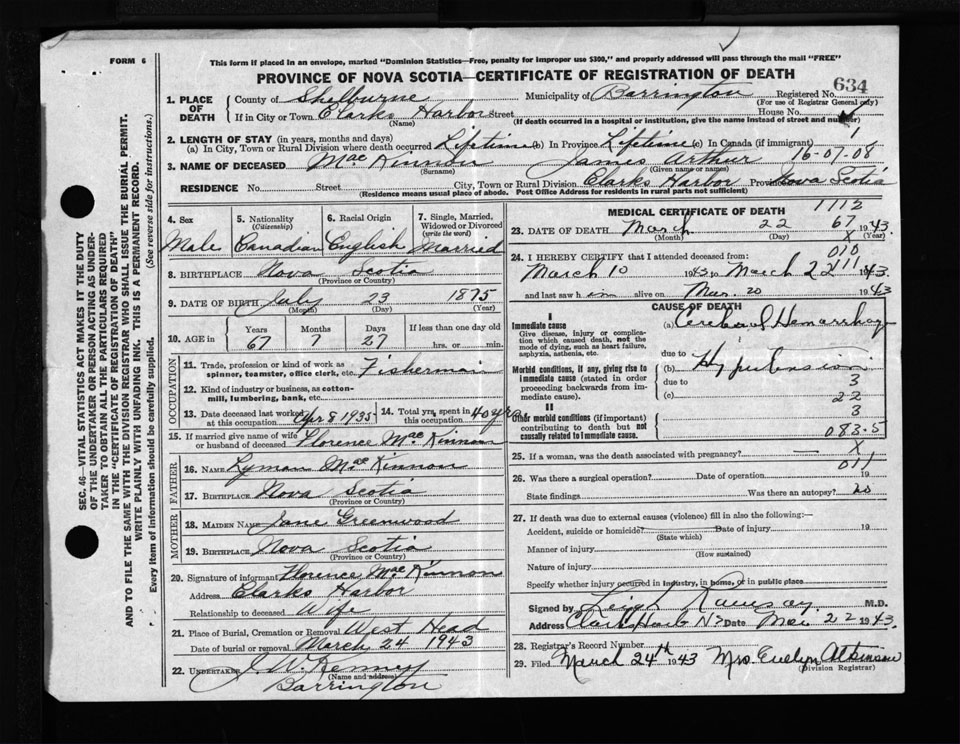 FORM 6
This form if placed in an envelope, marked "Dominion Statistics—Free, penalty for improper use $300," and properly addressed will pass through the mail "FREE"
PROVINCE OF NOVA SCOTIA—CERTIFICATE OF REGISTRATION OF DEATH
634
1. PLACE OF DEATH County of Shelburne Municipality of Barrington Registered No.
(For use of Registrar General only)
If in City or Town Clarks Harbor Street House No.
(Name) (If death occurred in a hospital or institution, give the name instead of street and number)
2. LENGTH OF STAY (in years, months and days)
(a) In City, Town or Rural Division where death occurred Lifetime (b) In Province Lifetime (c) In Canada (if immigrant)
3. NAME OF DECEASED MacKinnon James Arthur 16-07-08
(Surname) (Given name or names)
RESIDENCE No. Street City, Town or Rural Division Clarks Harbor Province Nova Scotia
(Residence means usual place of abode. Post Office Address for residents in rural parts not sufficient)
4. Sex 5. Nationality (Citizenship) 6. Racial Origin 7. Single, Married, Widowed or Divorced (write the word)
Male Canadian English Married
8. BIRTHPLACE Nova Scotia
(Province or Country)
9. DATE OF BIRTH July 23 1875
(Month) (Day) (Year)
10. AGE in Years Months Days If less than one day old
67 7 27 hrs. or min.
OCCUPATION
11. Trade, profession or kind of work as spinner, teamster, office clerk, etc. Fisherman
12. Kind of industry or business, as cotton-mill, lumbering, bank, etc.
13. Date deceased last worked at this occupation Apr 8 1935 14. Total yrs. spent in this occupation 40 yrs
15. If married give name of wife or husband of deceased Florence MacKinnon
FATHER
16. NAME Lyman MacKinnon
17. BIRTHPLACE Nova Scotia
(Province or Country)
MOTHER
18. MAIDEN NAME Jane Greenwood
19. BIRTHPLACE Nova Scotia
(Province or Country)
20. Signature of informant Florence MacKinnon
Address Clarks Harbor
Relationship to deceased Wife
21. Place of Burial, Cremation or Removal West Head
Date of burial or removal March 24 1943
22. UNDERTAKER J. W. Kenney
(Name and address)
Barrington
MEDICAL CERTIFICATE OF DEATH 1112
23. DATE OF DEATH March 22 67 1943
(Month) (Day) X (Year)
24. I HEREBY CERTIFY that I attended deceased from: 010
March 10 1943 to March 22 111 1943
and last saw him alive on Mar. 20 1943
CAUSE OF DEATH
I
Immediate cause (a) Cerebral Hemorrhage
Give disease, injury or complication which caused death, not the mode of dying, such as heart failure, asphyxia, asthenia, etc.
due to
Morbid conditions, if any, giving rise to immediate cause (stated in order proceeding backwards from immediate cause) (b) Hypertension
due to 3
(c) 22
II 3
Other morbid conditions (if important) contributing to death but not causally related to immediate cause. 083.5
25. If a woman, was the death associated with pregnancy? — X
011
26. Was there a surgical operation? Date of operation 19
State findings Was there an autopsy? no
27. If death was due to external causes (violence) fill in also the following:—
Accident, suicide or homicide? Date of injury 19
(State which)
Manner of injury
(How sustained)
Nature of injury
Specify whether injury occurred in industry, in home, or in public place
Signed by Leigh Ramsay M.D.
Address Clarks Harb NS Date Mar 22 1943
28. Registrar's Record Number
29. Filed March 24th 1943 Mrs. Evelyn Atkinson
(Division Registrar)
SEC. 46—VITAL STATISTICS ACT MAKES IT THE DUTY
OF THE UNDERTAKER OR PERSON ACTING AS UNDER-
TAKER TO OBTAIN ALL THE PARTICULARS REQUIRED
IN THE "CERTIFICATE OF REGISTRATION OF DEATH"
AND TO FILE THE SAME WITH THE DIVISION REGISTRAR WHO SHALL ISSUE THE BURIAL PERMIT.
WRITE PLAINLY WITH UNFADING INK. THIS IS A PERMANENT RECORD.
Every item of information should be carefully supplied. (See reverse side for instructions.)